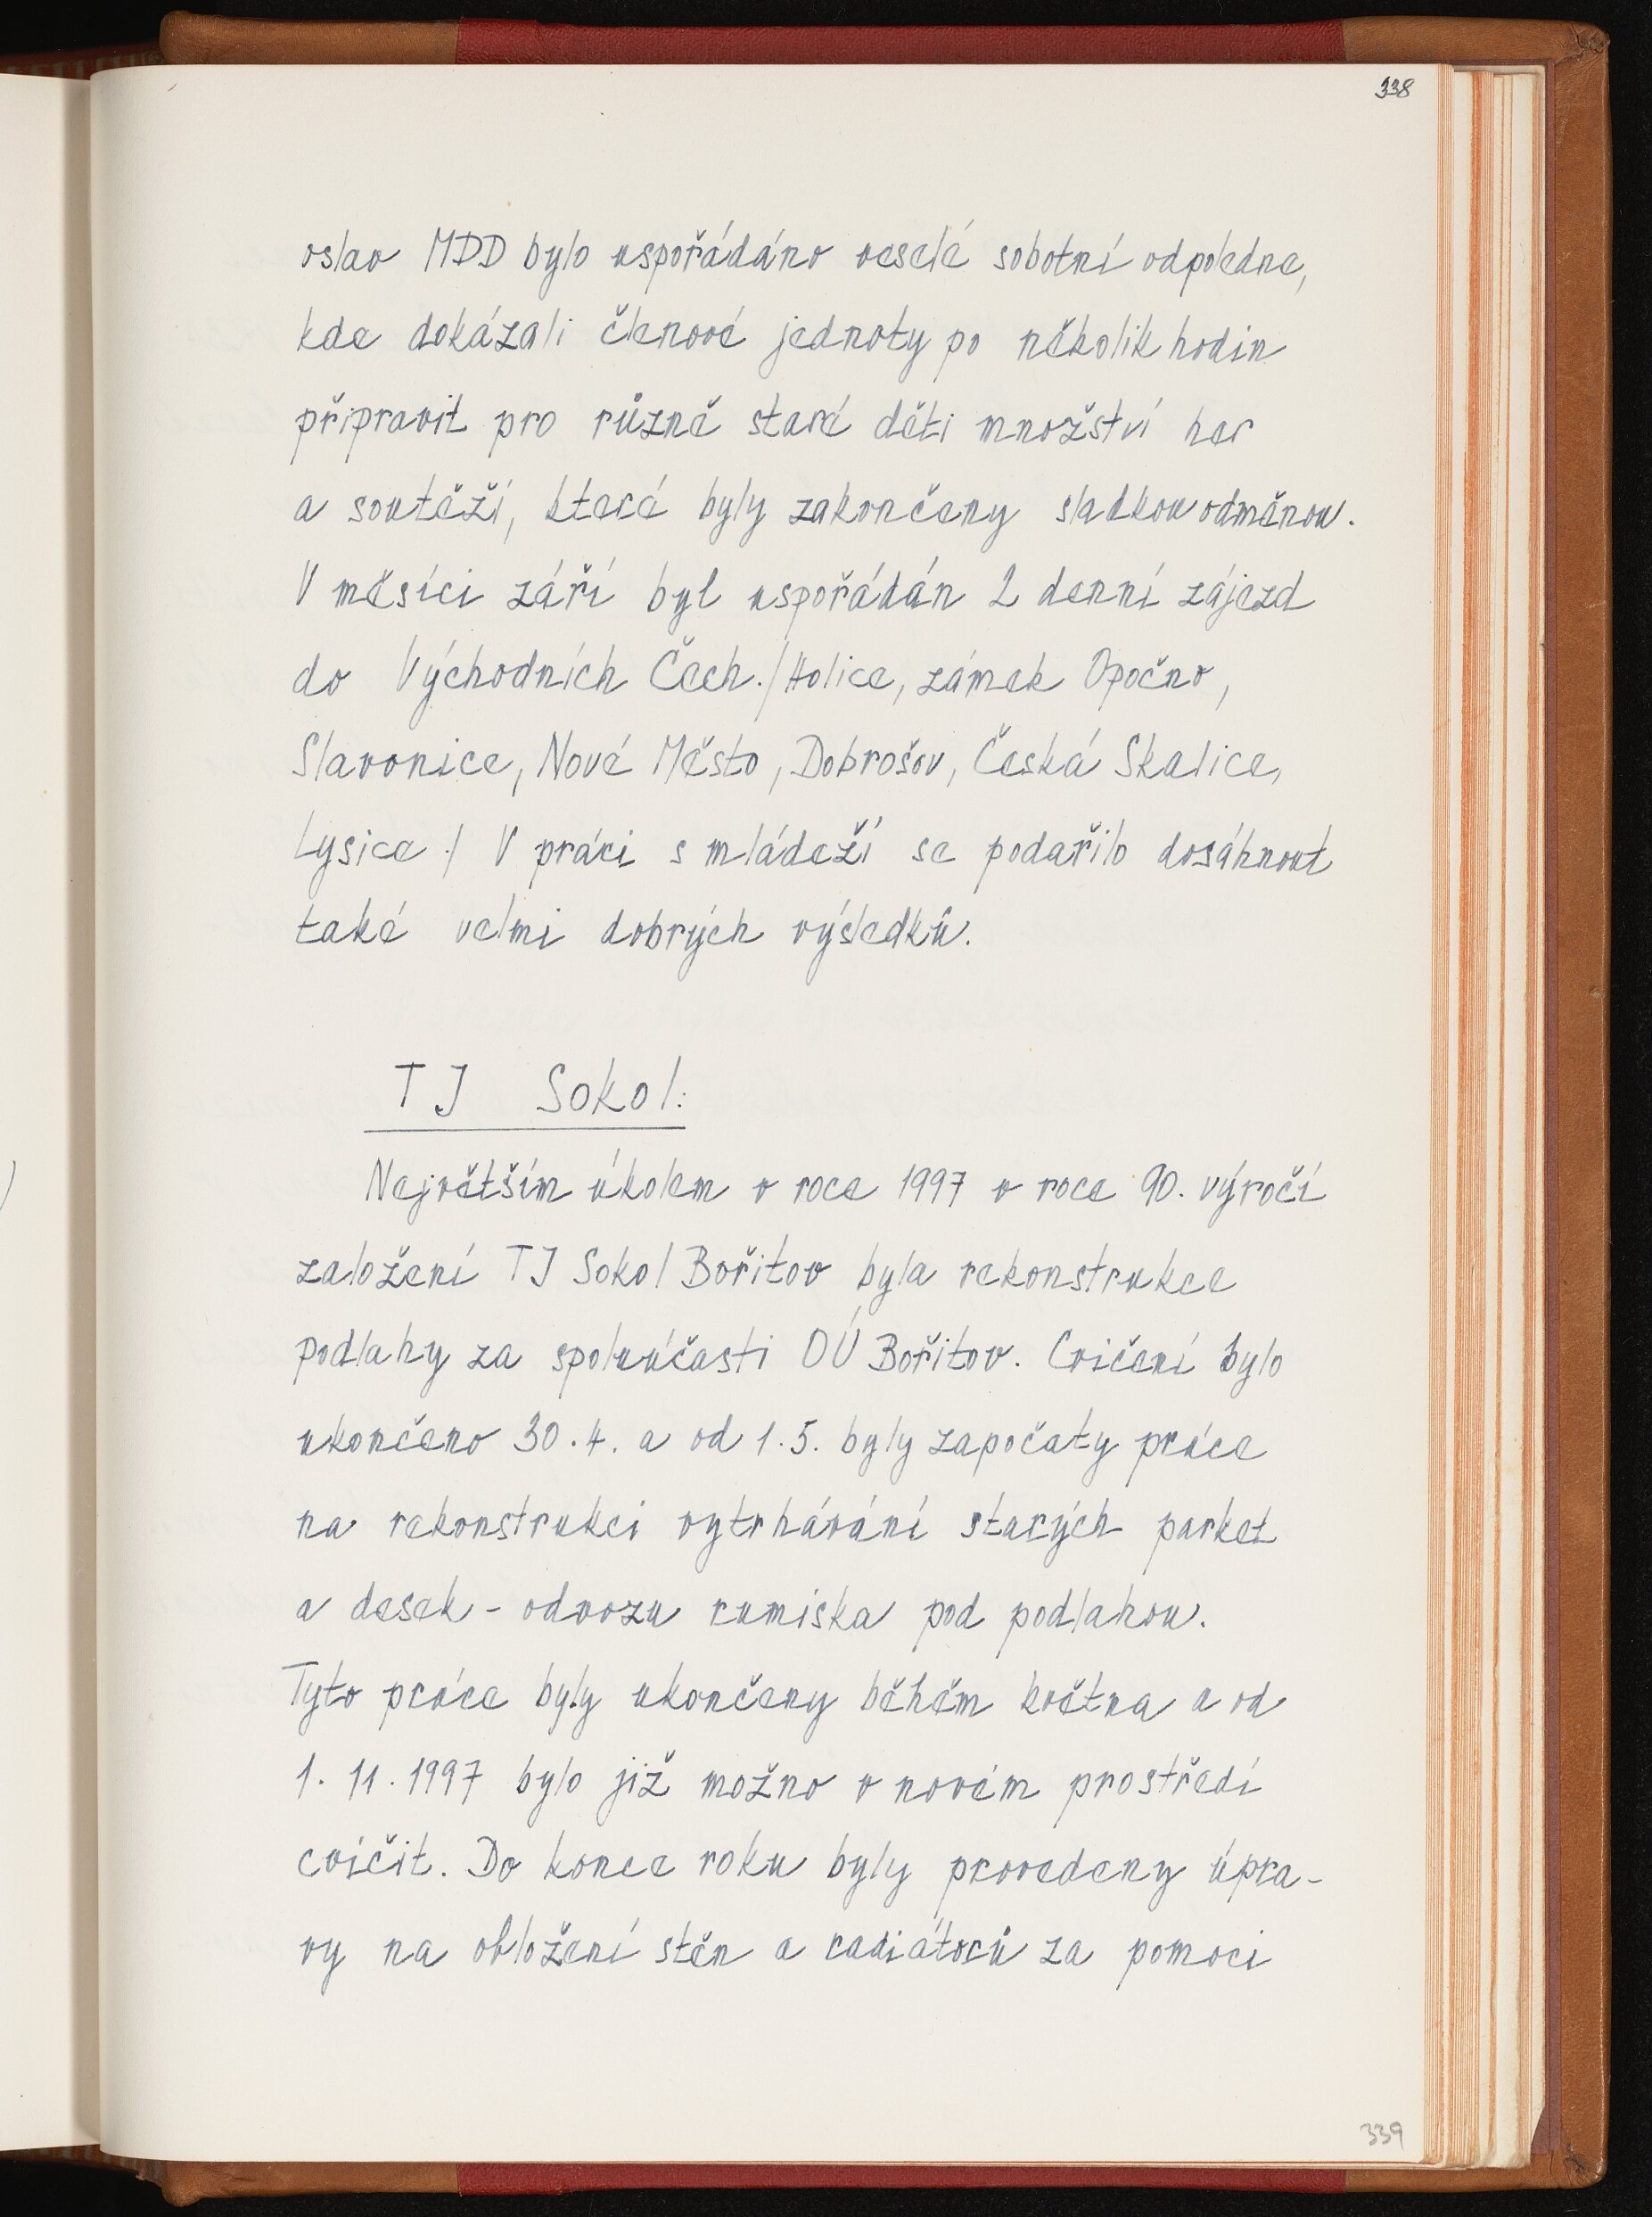 338
oslav MDD bylo uspořádáno veselé sobotní odpoledne,
kde dokázali členové jednoty po několik hodin
připravit pro různě staré děti množství her
a soutěží, které byly zakončeny sladkou odměnou.
V měsíci září byl uspořádán 2 denní zájezd
do Východních Čech./Holice, zámek Opočno,
Slavonice, Nové Město, Dobrošov, Česká Skalice,
Lysice./ V práci s mládeží se podařilo dosáhnout
také velmi dobrých výsledků.
TJ Sokol:
Největším úkolem v roce 1997 v roce 90. výročí
založení TJ Sokol Bořitov byla rekonstrukce
podlahy za spoluúčasti OÚ Bořitov. Cvičení bylo
ukončeno 30.4. a od 1.5. byly započaty práce
na rekonstrukci vytrhávání starých parket
a desek - odvozu rumiska pod podlahou.
Tyto práce byly ukončeny během května a od
1. 11. 1997 bylo již možno v novém prostředí
cvičit. Do konce roku byly provedeny úpra-
vy na obložení stěn a radiátorů za pomoci
339